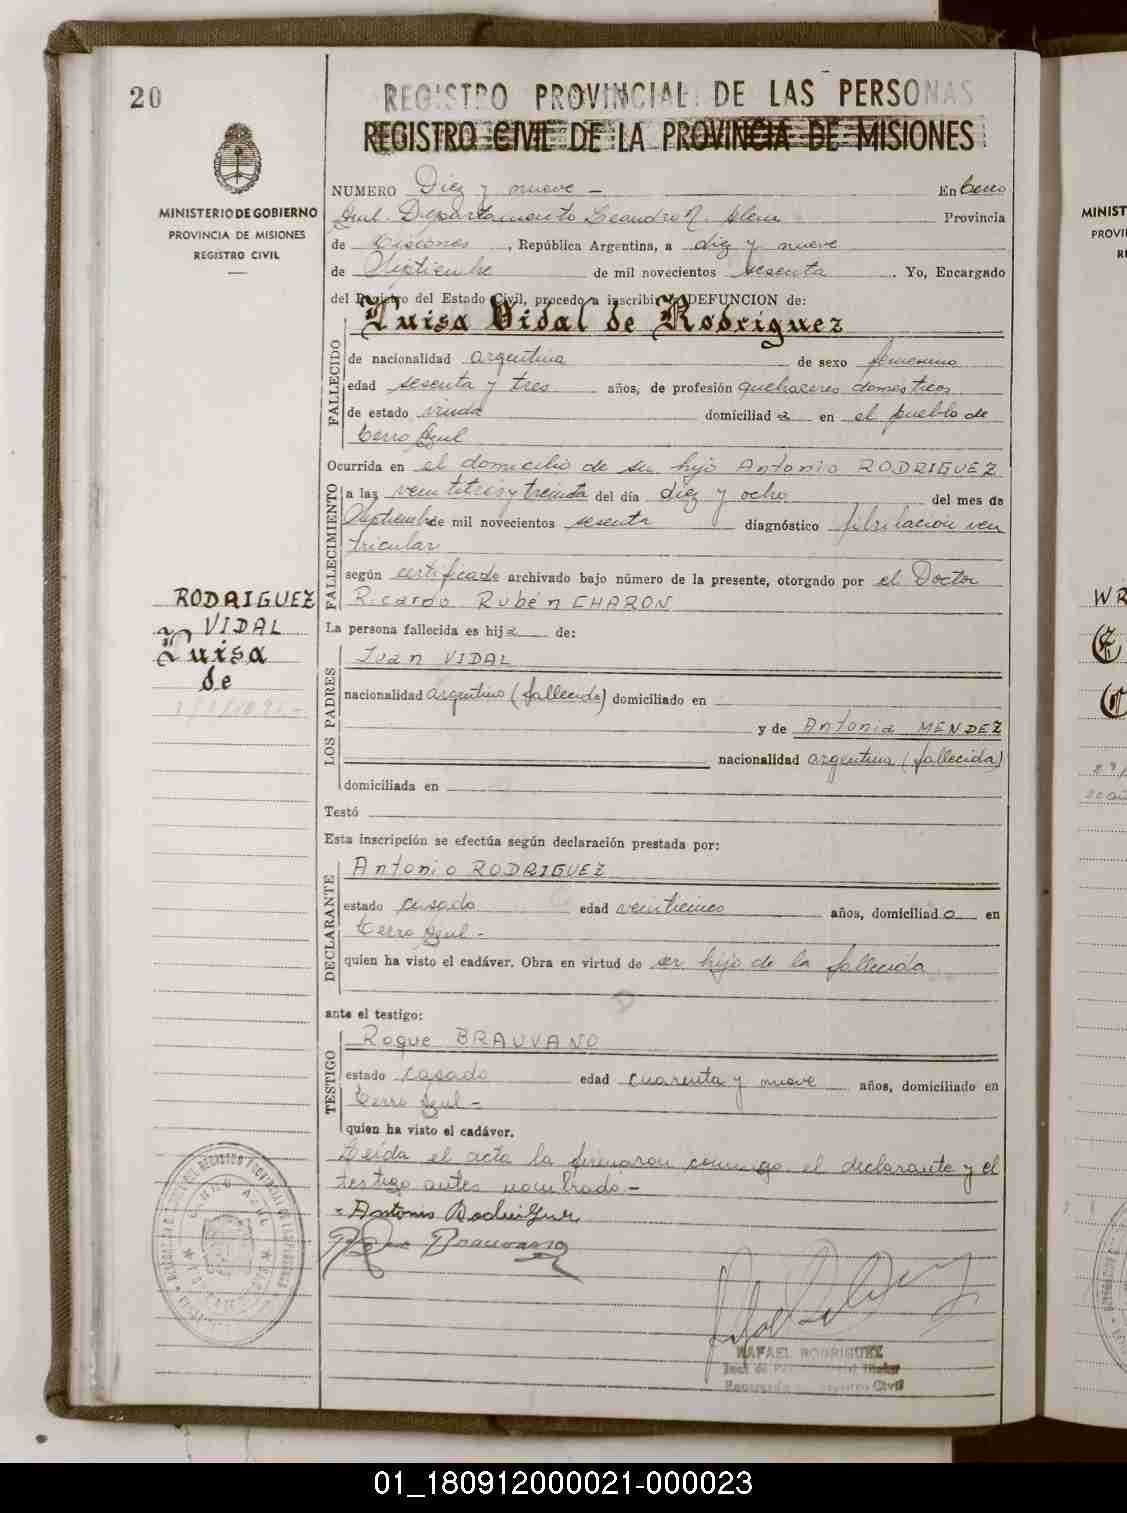 20
REGISTRO PROVINCIAL DE LAS PERSONAS
REGISTRO CIVIL DE LA PROVINCIA DE MISIONES
MINISTERIO DE GOBIERNO
PROVINCIA DE MISIONES
REGISTRO CIVIL
NUMERO Diez y nueve - En Cerro
Azul Departamento Leandro N. Alem Provincia
de Misiones, República Argentina, a diez y nueve
de Septiembre de mil novecientos sesenta. Yo, Encargado
del Registro del Estado Civil, procedo a inscribir la DEFUNCION de:
Luisa Vidal de Rodriguez
FALLECIDO
de nacionalidad argentina de sexo femenino
edad sesenta y tres años, de profesión quehaceres domesticos
de estado viuda domiciliad a en el pueblo de
Cerro Azul
Ocurrida en el domicilio de su hijo Antonio RODRIGUEZ
FALLECIMIENTO
a las veintitres y treinta del día diez y ocho del mes de
Septiembre de mil novecientos sesenta diagnóstico fibrilación ven
tricular
según certificado archivado bajo número de la presente, otorgado por el Doctor
Ricardo Rubén CHARON
RODRIGUEZ
VIDAL
Luisa
de
La persona fallecida es hija de:
LOS PADRES
Juan VIDAL
nacionalidad argentino (fallecido) domiciliado en
y de Antonia MENDEZ
nacionalidad argentina (fallecida)
domiciliada en
Testó
Esta inscripción se efectúa según declaración prestada por:
DECLARANTE
Antonio RODRIGUEZ
estado casado edad veinticinco años, domiciliado en
Cerro Azul -
quien ha visto el cadáver. Obra en virtud de ser hijo de la fallecida
ante el testigo:
TESTIGO
Roque BRAUVANO
estado casado edad cuarenta y nueve años, domiciliado en
Cerro Azul -
quien ha visto el cadáver.
Leída el acta la firmaron conmigo el declarante y el
testigo antes nombrado. -
Antonio Rodriguez
RAFAEL RODRIGUEZ
MINIST
PROVI
R
WR
01_180912000021-000023